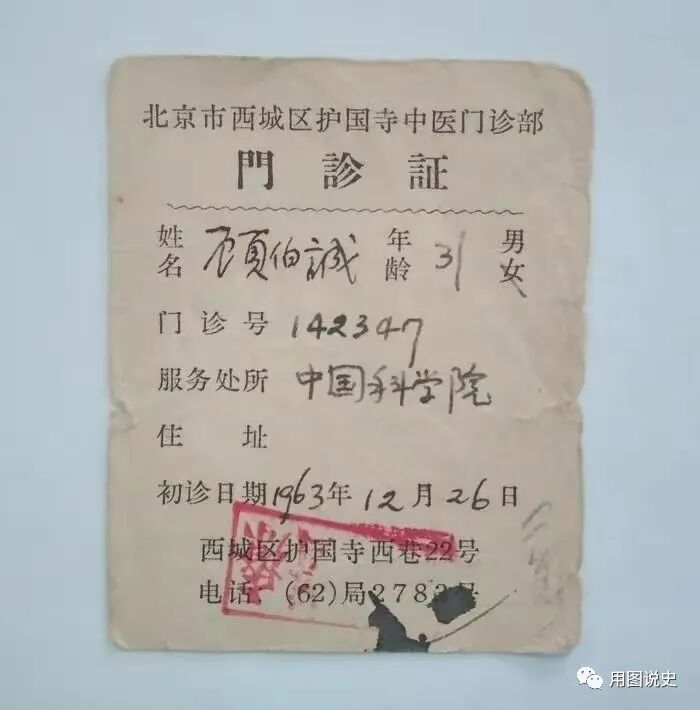 北京市西城区护国寺中医门诊部
門診証
姓名 顾伯誠 年龄 31 男女
门诊号 142347
服务处所 中国科学院
住址
初诊日期 1963年12月26日
西城区护国寺西巷22号
电话:(62)局2783号
用图说史